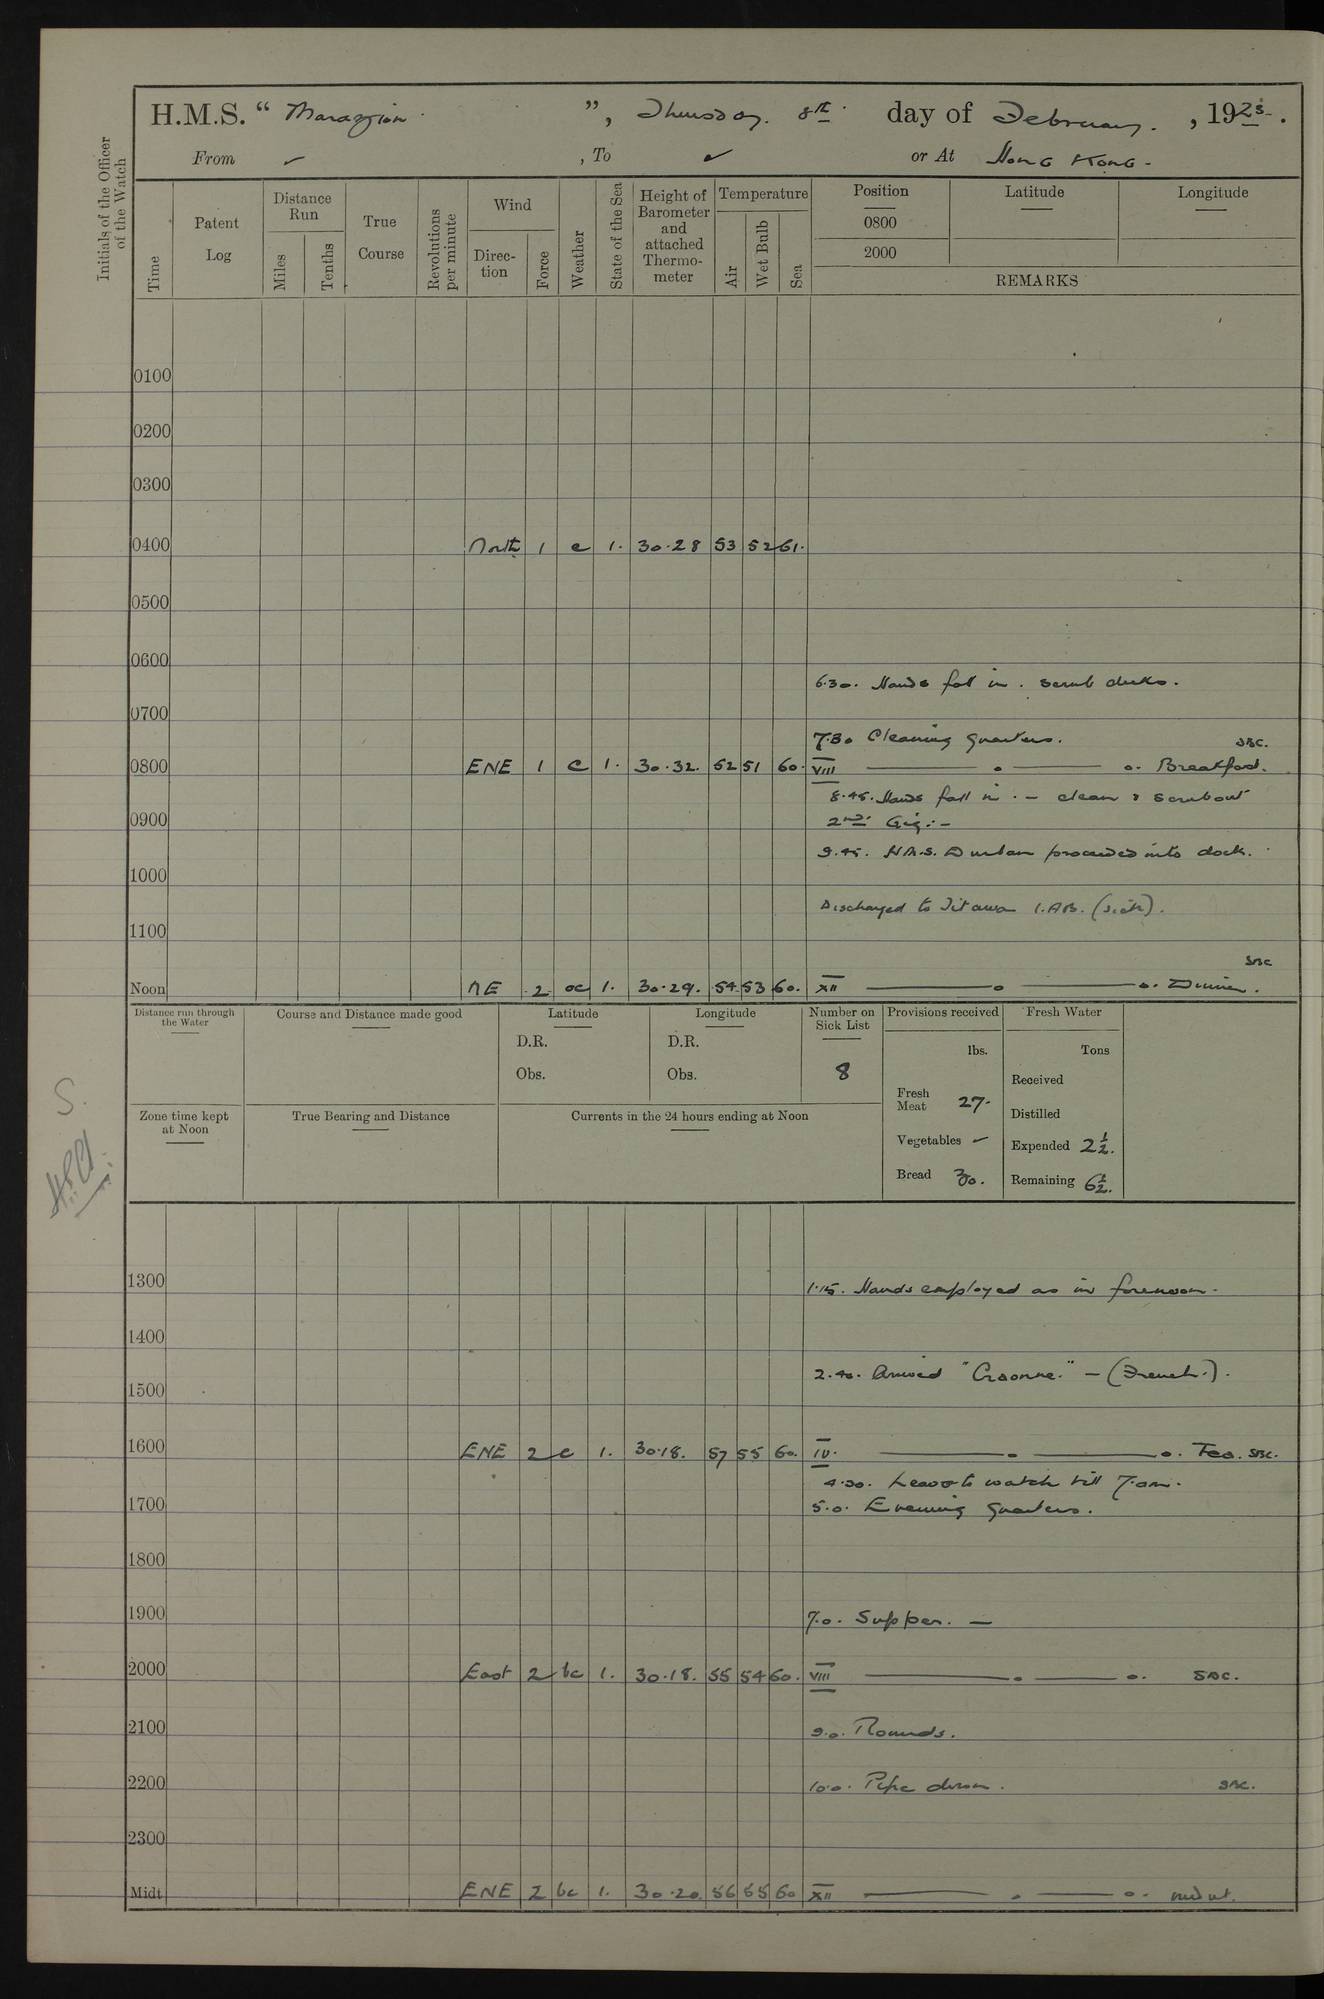 H.M.S. “ Marazion ”, Thursday. 8th day of February. , 1923.
From ✓ , To ✓ or At Hong Kong.
Initials of the Officer of the Watch
Time
Patent Log
Distance Run
Miles
Tenths
True Course
Revolutions per minute
Wind
Direction
Force
Weather
State of the Sea
Height of Barometer and attached Thermometer
Temperature
Air
Wet Bulb
Sea
Position
Latitude
Longitude
0800
2000
REMARKS
0100
0200
0300
0400 North 1 c 1. 30.28 53 52 61.
0500
0600
6.30. Hands fall in. Scrub decks.
0700
7.30 Cleaning quarters. SBC.
0800 ENE 1 C 1. 30.32. 52 51 60. VIII Breakfast.
8.45. Hands fall in. - clean & scrub out
0900 2nd Gig:-
9.45. H.M.S. Durban proceeded into dock.
1000
Discharged to Titania 1.AB. (sick).
1100
SBC
Noon NE 2 oc 1. 30.29. 54. 53 60. XII Dinner.
Distance run through the Water
Course and Distance made good
Latitude
D.R.
Obs.
Longitude
D.R.
Obs.
Number on Sick List
8
Provisions received
lbs.
Fresh Meat 27.
Vegetables ✓
Bread 30.
Fresh Water
Tons
Received
Distilled
Expended 2½.
Remaining 6½.
Zone time kept at Noon
True Bearing and Distance
Currents in the 24 hours ending at Noon
S.
1300 1.15. Hands employed as in forenoon.
1400
2.40. Arrived "Craonne." - (French.).
1500
1600 ENE 2 c 1. 30.18. 57 55 60. IV. Tea. SBC.
4.30. Leave to watch till 7.am.
1700 5.0. Evening quarters.
1800
1900 7.0. Supper. —
2000 East 2 bc 1. 30.18. 55 54 60. VIII SBC.
2100 9.0. Rounds.
2200 10.0. Pipe down. SBC.
2300
Midt ENE 2 bc 1. 30.20. 56 55 60 XII